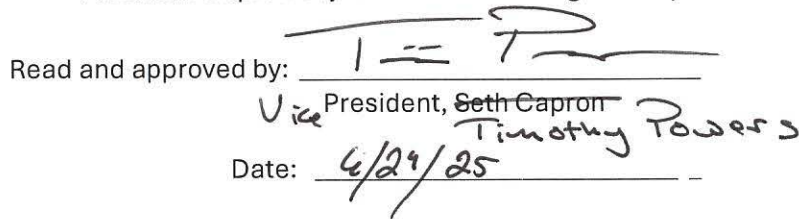 Read and approved by:
Vice President, Seth Capron
Timothy Powers
Date: 6/24/25